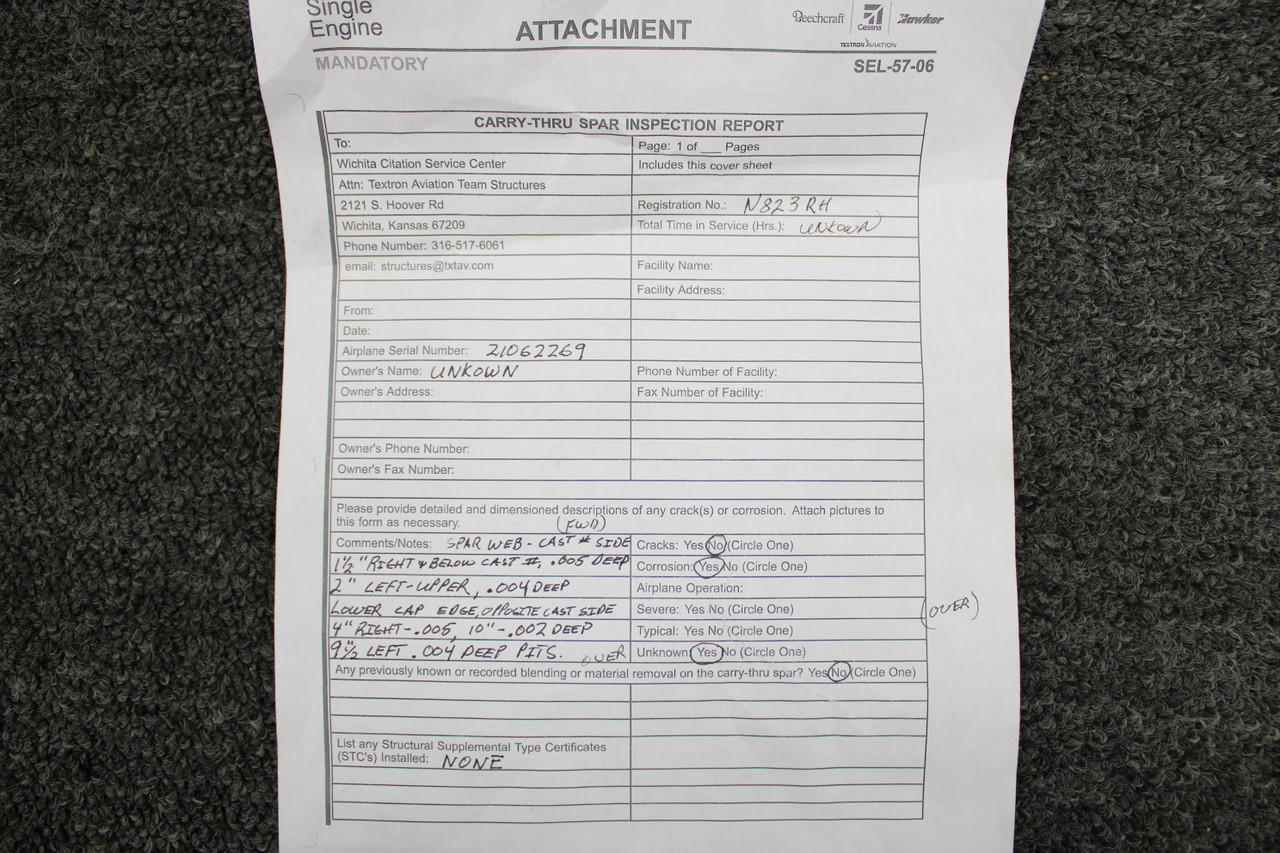 Single
Engine
ATTACHMENT
Beechcraft
Cessna
Hawker
TEXTRON AVIATION
MANDATORY
SEL-57-06
CARRY-THRU SPAR INSPECTION REPORT
To:
Page: 1 of ___ Pages
Wichita Citation Service Center
Includes this cover sheet
Attn: Textron Aviation Team Structures
2121 S. Hoover Rd
Registration No.: N823RH
Wichita, Kansas 67209
Total Time in Service (Hrs.): UNKOWN
Phone Number: 316-517-6061
email: structures@txtav.com
Facility Name:
Facility Address:
From:
Date:
Airplane Serial Number: 21062269
Owner's Name: UNKOWN
Phone Number of Facility:
Owner's Address:
Fax Number of Facility:
Owner's Phone Number:
Owner's Fax Number:
Please provide detailed and dimensioned descriptions of any crack(s) or corrosion. Attach pictures to
this form as necessary.
(FWD)
Comments/Notes: SPAR WEB - CAST # SIDE
Cracks: Yes No (Circle One)
1½" RIGHT & BELOW CAST #, .005 DEEP
Corrosion: Yes No (Circle One)
2" LEFT-UPPER, .004 DEEP
Airplane Operation:
LOWER CAP EDGE, OPPOSITE CAST SIDE
Severe: Yes No (Circle One)
(OVER)
4" RIGHT-.005, 10"-.002 DEEP
Typical: Yes No (Circle One)
9½ LEFT .004 DEEP PITS. OVER
Unknown: Yes No (Circle One)
Any previously known or recorded blending or material removal on the carry-thru spar? Yes No (Circle One)
List any Structural Supplemental Type Certificates
(STC's) Installed: NONE